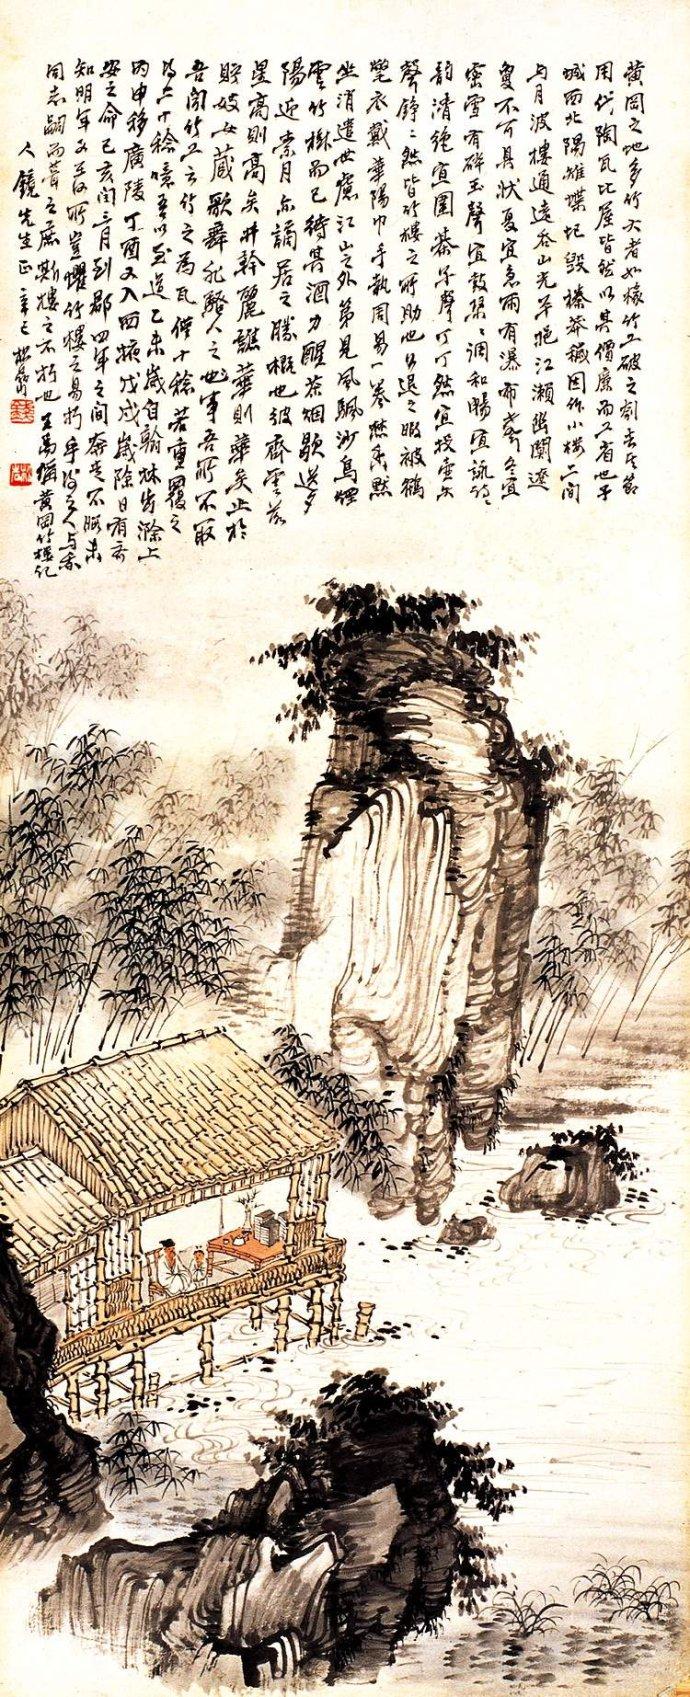 黄岡之地多竹大者如椽竹工破之刳去其節
用代陶瓦比屋皆然以其價廉而工省也予
城西北隅雉堞圮毀榛莽穢因作小樓二間
与月波樓通遠吞山光平挹江瀨幽闃遼
夐不可具狀夏宜急雨有瀑布聲冬宜
密雪有碎玉聲宜鼓琴琴調和暢宜詠詩詩
韵清絕宜圍棊子聲丁丁然宜投壺矢
聲錚錚然皆竹樓之所助也公退之暇被鶴
氅衣戴華陽巾手執周易一卷焚香默
坐消遣世慮江山之外第見風颿沙鳥煙
雲竹樹而已待其酒力醒茶烟歇送夕
陽迎素月亦謫居之勝概也彼齊雲落
星高則高矣井幹麗譙華則華矣止於
貯妓女藏歌舞非騷人之事吾所不取
吾聞竹工云竹之為瓦僅十稔若重覆之
得二十稔噫吾以至道乙未歲自翰林出滁上
丙申移廣陵丁酉又入西掖戊戌歲除日有齊
安之命己亥閏三月到郡四年之間奔走不暇未
知明年又在何所豈懼竹樓之易朽乎後之人与吾
同志嗣而葺之庶斯樓之不朽也 王禹偁黄岡竹樓記
人鏡先生正 辛巳